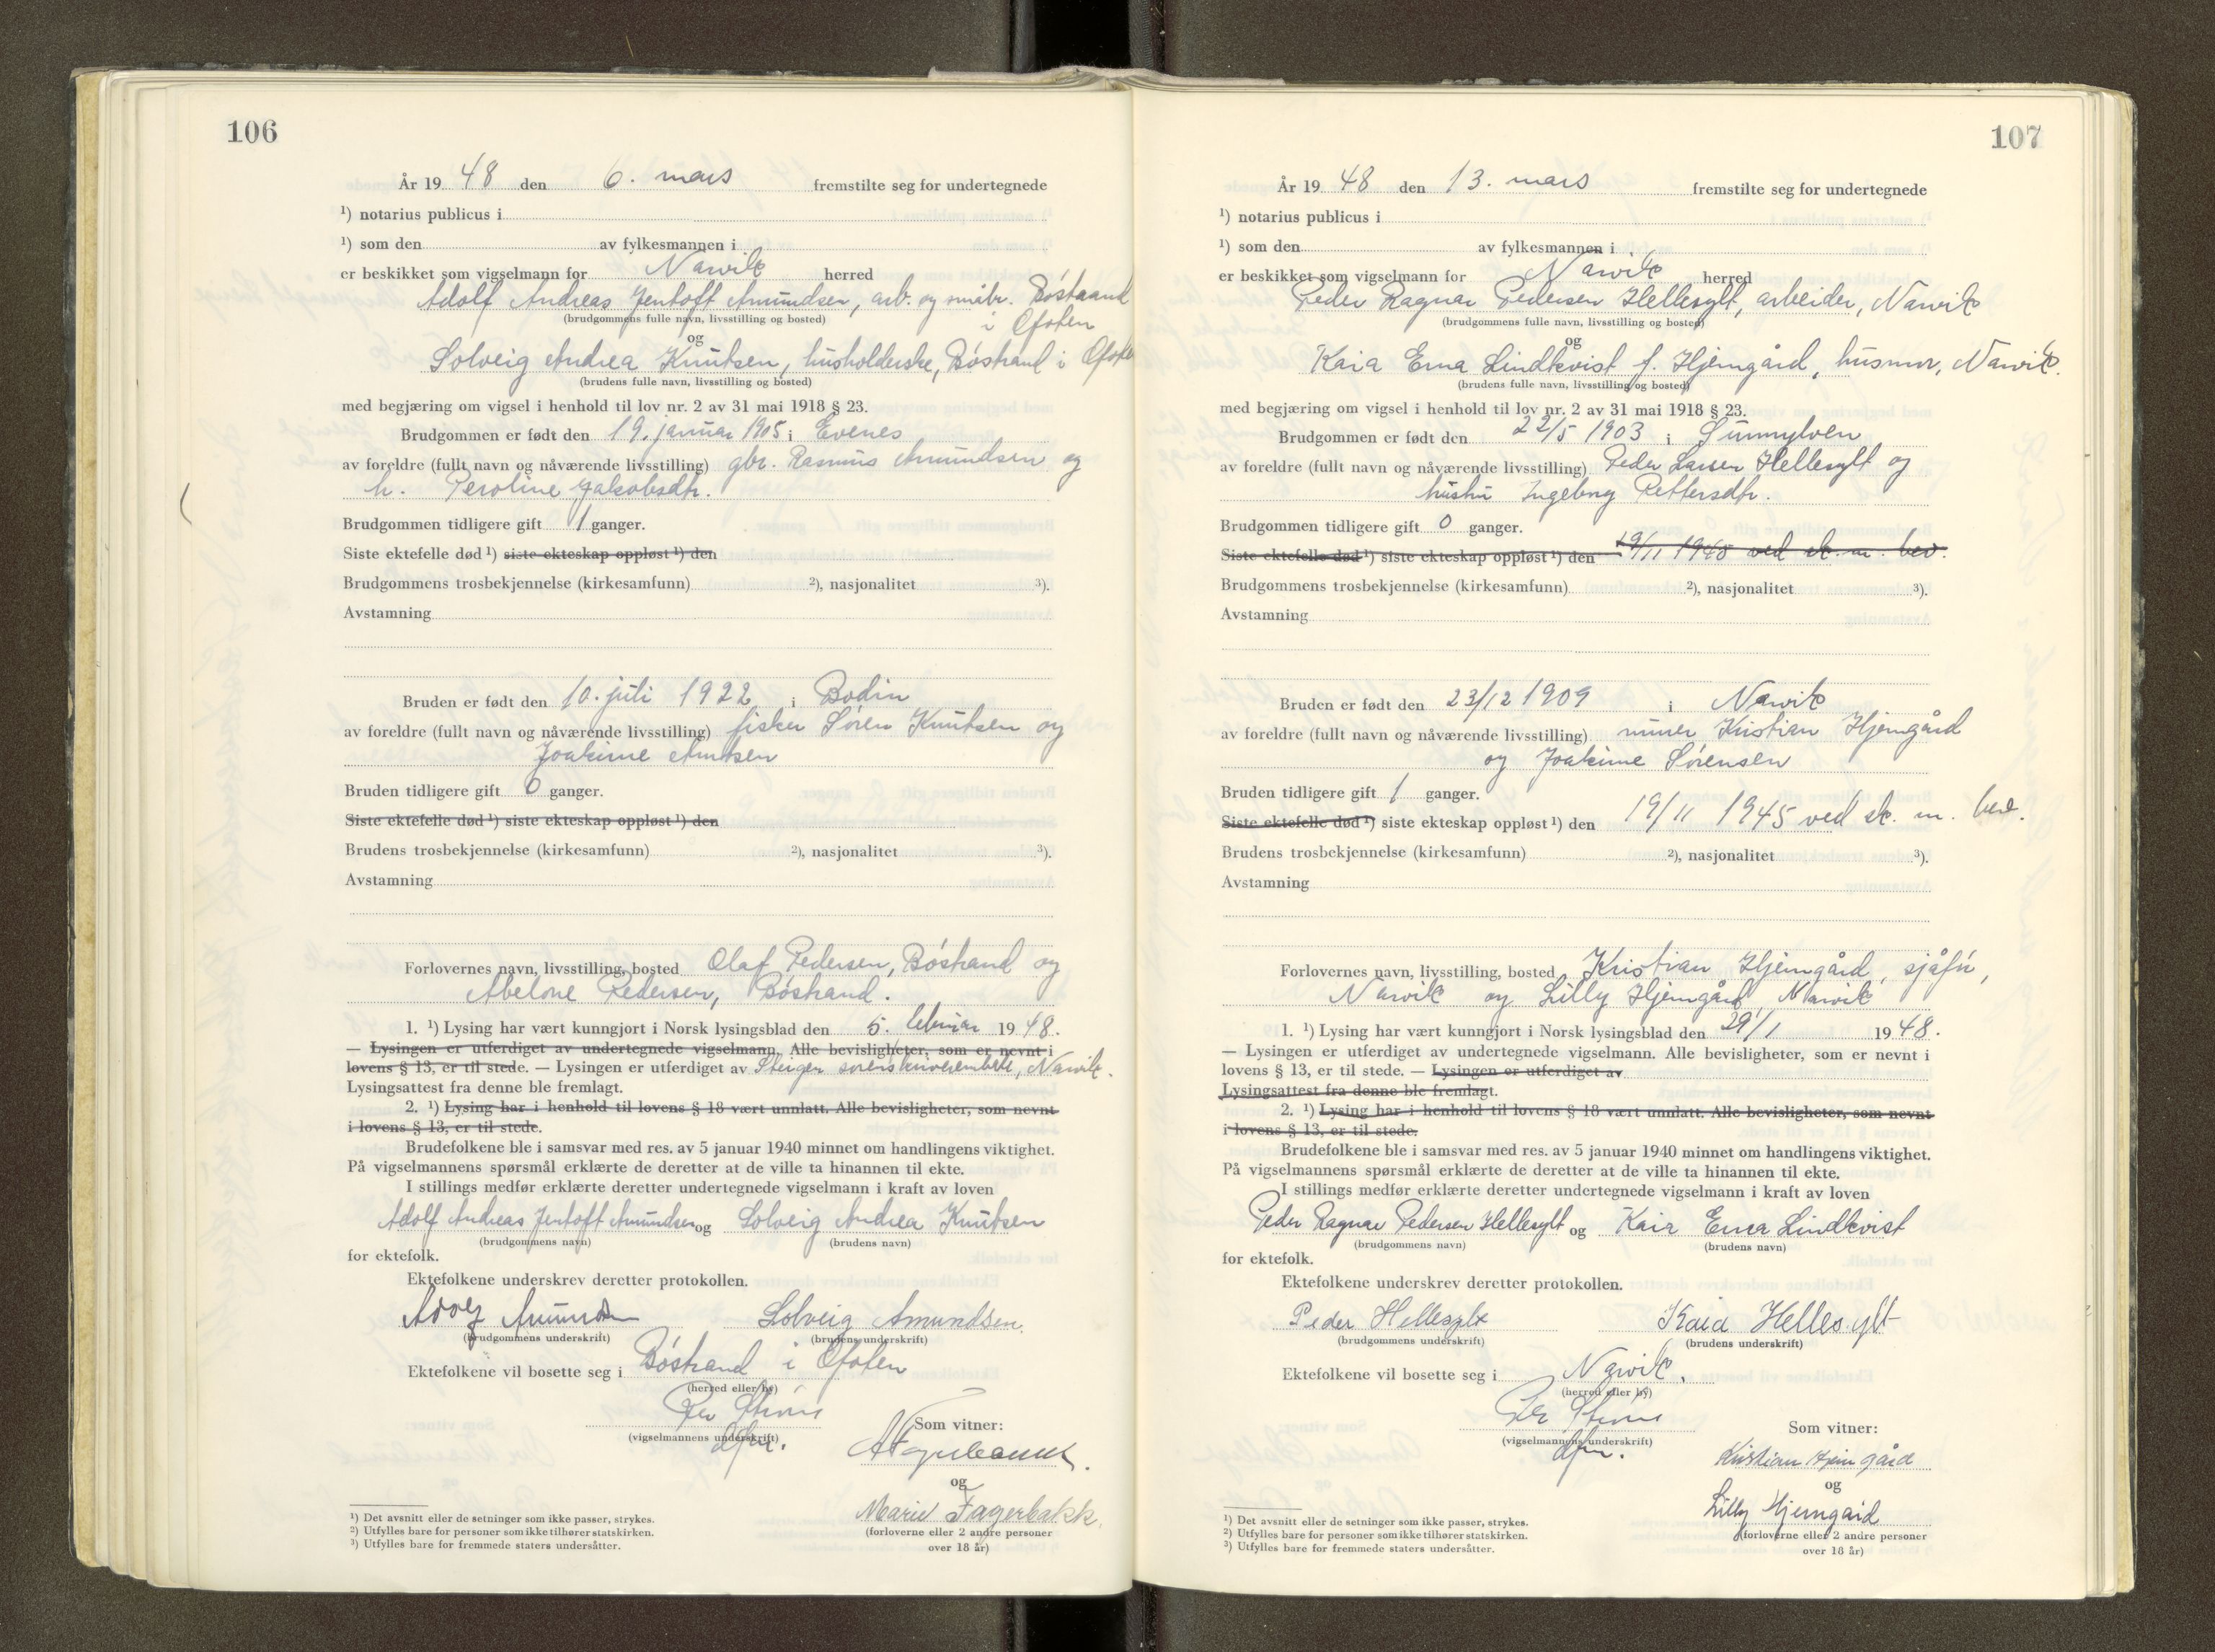 106
År 19 48 den 6. mars fremstilte seg for undertegnede
¹) notarius publicus i
¹) som den av fylkesmannen i
er beskikket som vigselmann for Narvik herred
Adolf Andreas Jentoft Amundsen, arb. og småbr. Bøstrand
i Ofoten
(brudgommens fulle navn, livsstilling og bosted)
og
Solveig Andrea Knutsen, husholderske, Bøstrand i Ofoten
(brudens fulle navn, livsstilling og bosted)
med begjæring om vigsel i henhold til lov nr. 2 av 31 mai 1918 § 23.
Brudgommen er født den 19. januar 1905 i Evenes
av foreldre (fullt navn og nåværende livsstilling) gbr. Rasmus Amundsen og
h. Peroline Jakobsdtr.
Brudgommen tidligere gift 1 ganger.
Siste ektefelle død ¹) siste ekteskap oppløst ¹) den
Brudgommens trosbekjennelse (kirkesamfunn) ²), nasjonalitet ³).
Avstamning
Bruden er født den 10. juli 1922 i Bodin
av foreldre (fullt navn og nåværende livsstilling) fisker Søren Knutsen og
Joakime Amtsen
Bruden tidligere gift 0 ganger.
Siste ektefelle død ¹) siste ekteskap oppløst ¹) den
Brudens trosbekjennelse (kirkesamfunn) ²), nasjonalitet ³).
Avstamning
Forlovernes navn, livsstilling, bosted Olaf Pedersen, Bøstrand og
Abelone Pedersen, Bøstrand.
1. ¹) Lysing har vært kunngjort i Norsk lysingsblad den 5. februar 19 48.
— Lysingen er utferdiget av undertegnede vigselmann. Alle bevisligheter, som er nevnt i
lovens § 13, er til stede. — Lysingen er utferdiget av Steigen sorenskriverembete, Narvik.
Lysingsattest fra denne ble fremlagt.
2. ¹) Lysing har i henhold til lovens § 18 vært unnlatt. Alle bevisligheter, som nevnt
i lovens § 13, er til stede.
Brudefolkene ble i samsvar med res. av 5 januar 1940 minnet om handlingens viktighet.
På vigselmannens spørsmål erklærte de deretter at de ville ta hinannen til ekte.
I stillings medfør erklærte deretter undertegnede vigselmann i kraft av loven
Adolf Andreas Jentoft Amundsen og Solveig Andrea Knutsen
(brudgommens navn) (brudens navn)
for ektefolk.
Ektefolkene underskrev deretter protokollen.
Adolf Amundsen Solveig Amundsen.
(brudgommens underskrift) (brudens underskrift)
Ektefolkene vil bosette seg i Bøstrand i Ofoten
(herred eller by)
Per
(vigselmannens underskrift)
dfm.
Som vitner:
og
Marie Fagerbakk.
(forloverne eller 2 andre personer
over 18 år)
¹) Det avsnitt eller de setninger som ikke passer, strykes.
²) Utfylles bare for personer som ikke tilhører statskirken.
³) Utfylles bare for fremmede staters undersåtter.
107
År 19 48 den 13. mars fremstilte seg for undertegnede
¹) notarius publicus i
¹) som den av fylkesmannen i
er beskikket som vigselmann for Narvik herred
Peder Ragnar Pedersen Hellesylt, arbeider, Narvik
(brudgommens fulle navn, livsstilling og bosted)
og
Kaia Erna Lindkvist f. Hjemgård, husmor, Narvik.
(brudens fulle navn, livsstilling og bosted)
med begjæring om vigsel i henhold til lov nr. 2 av 31 mai 1918 § 23.
Brudgommen er født den 22/5 1903 i Sunnylven
av foreldre (fullt navn og nåværende livsstilling) Peder Larsen Hellesylt og
hustru Ingeborg Pettersdtr.
Brudgommen tidligere gift 0 ganger.
Siste ektefelle død ¹) siste ekteskap oppløst ¹) den 19/11 1945 ved sk. m. bev.
Brudgommens trosbekjennelse (kirkesamfunn) ²), nasjonalitet ³).
Avstamning
Bruden er født den 23/12 1909 i Narvik
av foreldre (fullt navn og nåværende livsstilling) murer Kristian Hjemgård
og Joakime Sørensen
Bruden tidligere gift 1 ganger.
Siste ektefelle død ¹) siste ekteskap oppløst ¹) den 19/11 1945 ved sk. m. bev.
Brudens trosbekjennelse (kirkesamfunn) ²), nasjonalitet ³).
Avstamning
Forlovernes navn, livsstilling, bosted Kristian Hjemgård, sjåfør,
Narvik og Lilly Hjemgård, Narvik
1. ¹) Lysing har vært kunngjort i Norsk lysingsblad den 29/1 19 48.
— Lysingen er utferdiget av undertegnede vigselmann. Alle bevisligheter, som er nevnt i
lovens § 13, er til stede. — Lysingen er utferdiget av
Lysingsattest fra denne ble fremlagt.
2. ¹) Lysing har i henhold til lovens § 18 vært unnlatt. Alle bevisligheter, som nevnt
i lovens § 13, er til stede.
Brudefolkene ble i samsvar med res. av 5 januar 1940 minnet om handlingens viktighet.
På vigselmannens spørsmål erklærte de deretter at de ville ta hinannen til ekte.
I stillings medfør erklærte deretter undertegnede vigselmann i kraft av loven
Peder Ragnar Pedersen Hellesylt og Kaia Erna Lindkvist
(brudgommens navn) (brudens navn)
for ektefolk.
Ektefolkene underskrev deretter protokollen.
Peder Hellesylt Kaia Hellesylt
(brudgommens underskrift) (brudens underskrift)
Ektefolkene vil bosette seg i Narvik.
(herred eller by)
Per
(vigselmannens underskrift)
dfm.
Som vitner:
Kristian Hjemgård
og
Lilly Hjemgård
(forloverne eller 2 andre personer
over 18 år)
¹) Det avsnitt eller de setninger som ikke passer, strykes.
²) Utfylles bare for personer som ikke tilhører statskirken.
³) Utfylles bare for fremmede staters undersåtter.